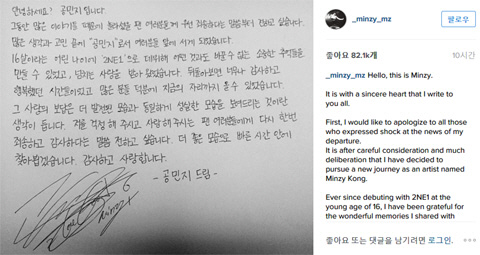 안녕하세요! 공민지입니다.
그동안 많은 이야기들 때문에 놀라셨을 팬 여러분들께 우선 죄송하다는 말씀부터 전하고 싶습니다.
많은 생각과 고민 끝에 "공민지"로서 여러분들 앞에 서게 되었습니다.
16살이라는 어린 나이에 "2NE1"으로 데뷔해 어떤 것과도 바꿀 수 없는 소중한 추억들을
만들 수 있었고, 넘치는 사랑을 받아 왔었습니다. 뒤돌아보면 너무나 감사하고
행복했던 시간들이었고 많은 분들 덕분에 지금의 자리까지 올 수 있었습니다.
그 사랑의 보답은 더 발전된 모습과 동일하게 성실한 모습을 보여드리는 것이란
생각이 듭니다. 저를 걱정해 주시고 사랑해주시는 팬 여러분들에게 다시 한번
죄송하고 감사하다는 말씀 전하고 싶습니다. 더 좋은 모습으로 빠른 시간 안에
찾아뵙겠습니다. 감사하고 사랑합니다.
-공민지 드림-
minzy
_minzy_mz
팔로우
좋아요 82.1개
10시간
_minzy_mz Hello, this is Minzy.
It is with a sincere heart that I write to
you all.
First, I would like to apologize to all those
who expressed shock at the news of my
departure.
It is after careful consideration and much
deliberation that I have decided to
pursue a new journey as an artist named
Minzy Kong.
Ever since debuting with 2NE1 at the
young age of 16, I have been grateful for
the wonderful memories I shared with
좋아요 또는 댓글을 남기려면 로그인.